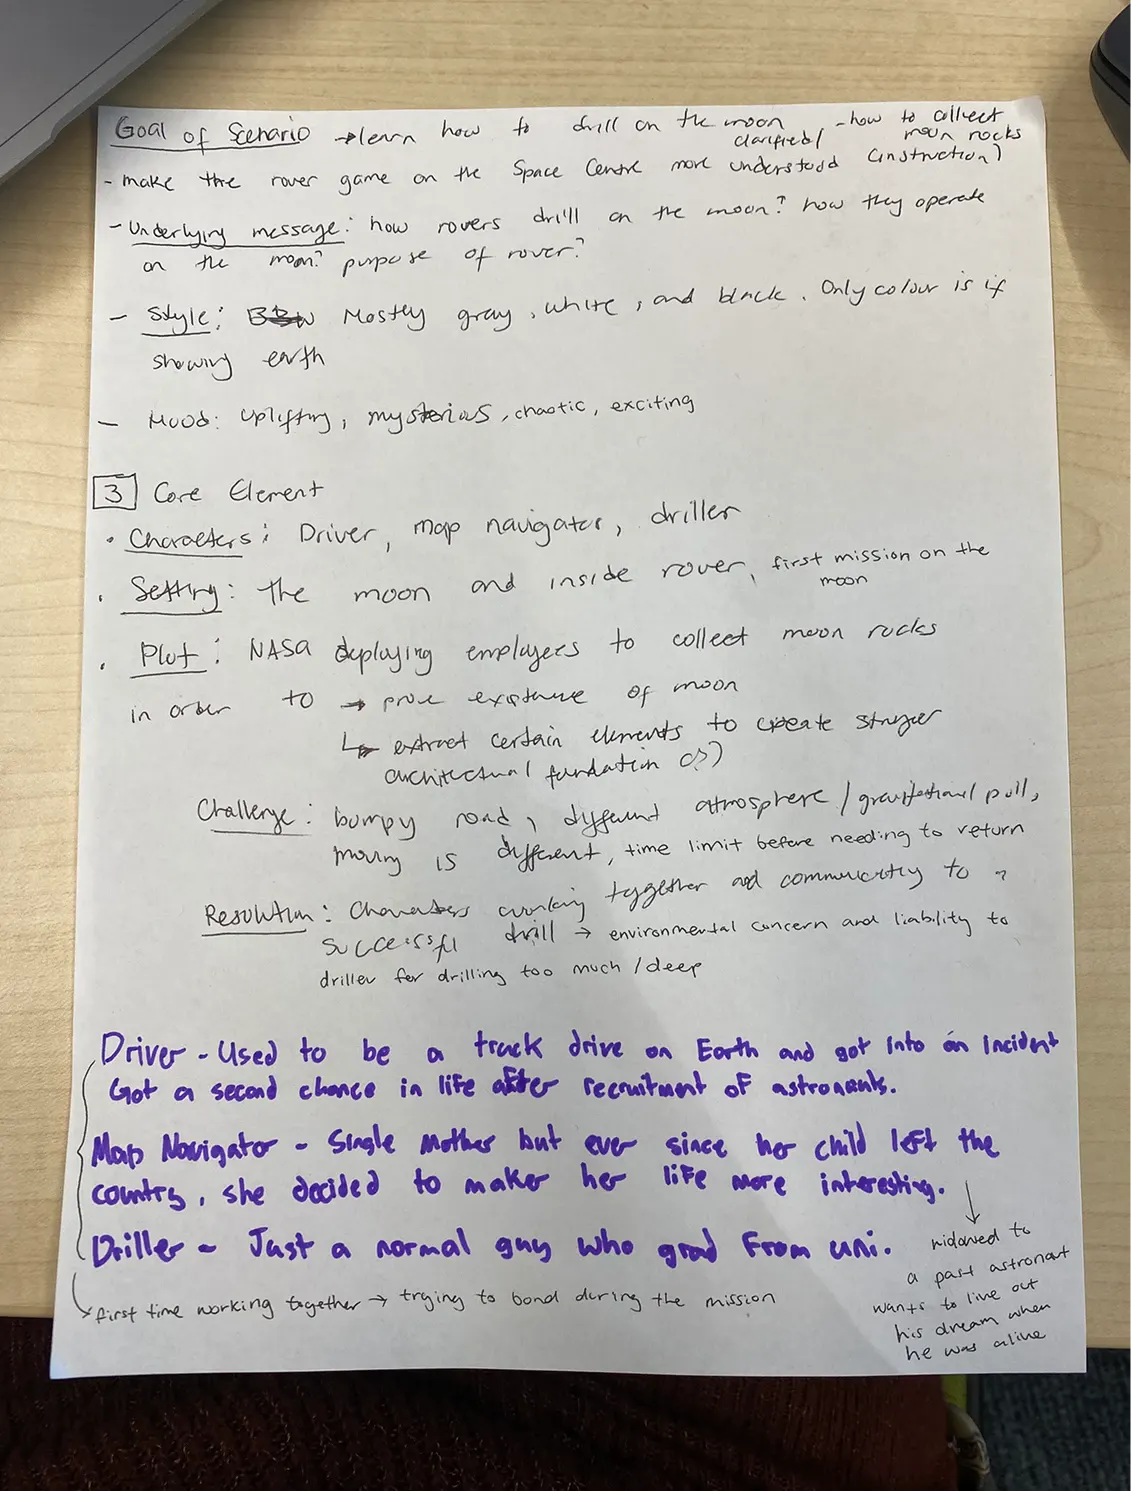 Goal of Scenario → learn how to drill on the moon - how to collect
moon rocks
clarified/
- make the rover game on the Space Centre more understood (instruction)
- Underlying message: how rovers drill on the moon? how they operate
on the moon? purpose of rover?
- Style: Mostly gray, white, and black. Only colour is if
showing earth
- Mood: uplifting, mysterious, chaotic, exciting
3 Core Element
• Characters: Driver, map navigator, driller
• Setting: the moon and inside rover, first mission on the
moon
• Plot: NASA deploying employees to collect moon rocks
in order to → prove existence of moon
↳ extract certain elements to create stronger
architectural fundation (?)
Challenge: bumpy road, different atmosphere / gravitational pull,
moving is different, time limit before needing to return
Resolution: Characters working together and communicating to a
successful drill → environmental concern and liability to
driller for drilling too much / deep
Driver - Used to be a track drive on Earth and got into an incident
Got a second chance in life after recruitment of astronauts.
Map Navigator - Single mother but ever since her child left the
country, she decided to maker her life more interesting.
Driller - Just a normal guy who grad from uni.
widowed to
a past astronaut
wants to live out
his dream when
he was alive
→ first time working together → trying to bond during the mission